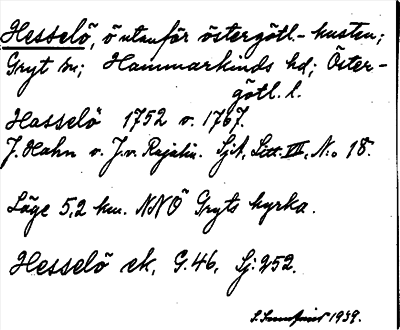 Hesselö, ö utanför östergötl.-kusten;
Gryt sn; Hammarkinds hd; Öster-
götl. l.
Hasselö 1752 o. 1767.
J. Hahn o. J. v. Rajalin. SjA, Litt. VII, N:o 18.
Läge 5,2 km. NNÖ Gryts kyrka.
Hesselö ek. G. 46, Sj: 252.
1939.